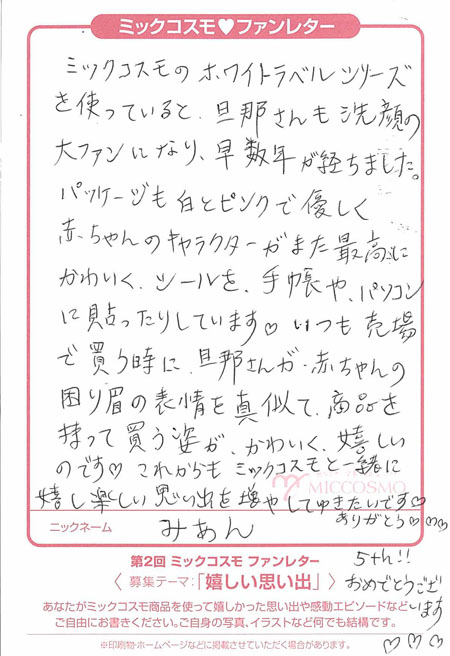 ミックコスモ♥ファンレター
ミックコスモのホワイトラベルシリーズ
を使っていると、旦那さんも洗顔の
大ファンになり、早数年が経ちました。
パッケージも白とピンクで優しく
赤ちゃんのキャラクターがまた最高に
かわいく、シールを、手帳や、パソコン
に貼ったりしています♡ いつも売場
で買う時に、旦那さんが、赤ちゃんの
困り眉の表情を真似て、商品を
持って買う姿が、かわいく、嬉しい
のです♡ これからもミックコスモと一緒に
MICCOSMO
嬉し楽しい思い出を増やしてゆきたいです♡
ありがとう♡♡♡
ニックネーム みぁん
第2回 ミックコスモ ファンレター
〈 募集テーマ:「嬉しい思い出」 〉
5th!!
おめでとうござ
います
♡♡♡
あなたがミックコスモ商品を使って嬉しかった思い出や感動エピソードなど、
ご自由にお書きください。ご自身の写真、イラストなど何でも結構です。
※印刷物・ホームページなどに掲載させていただく場合があります。